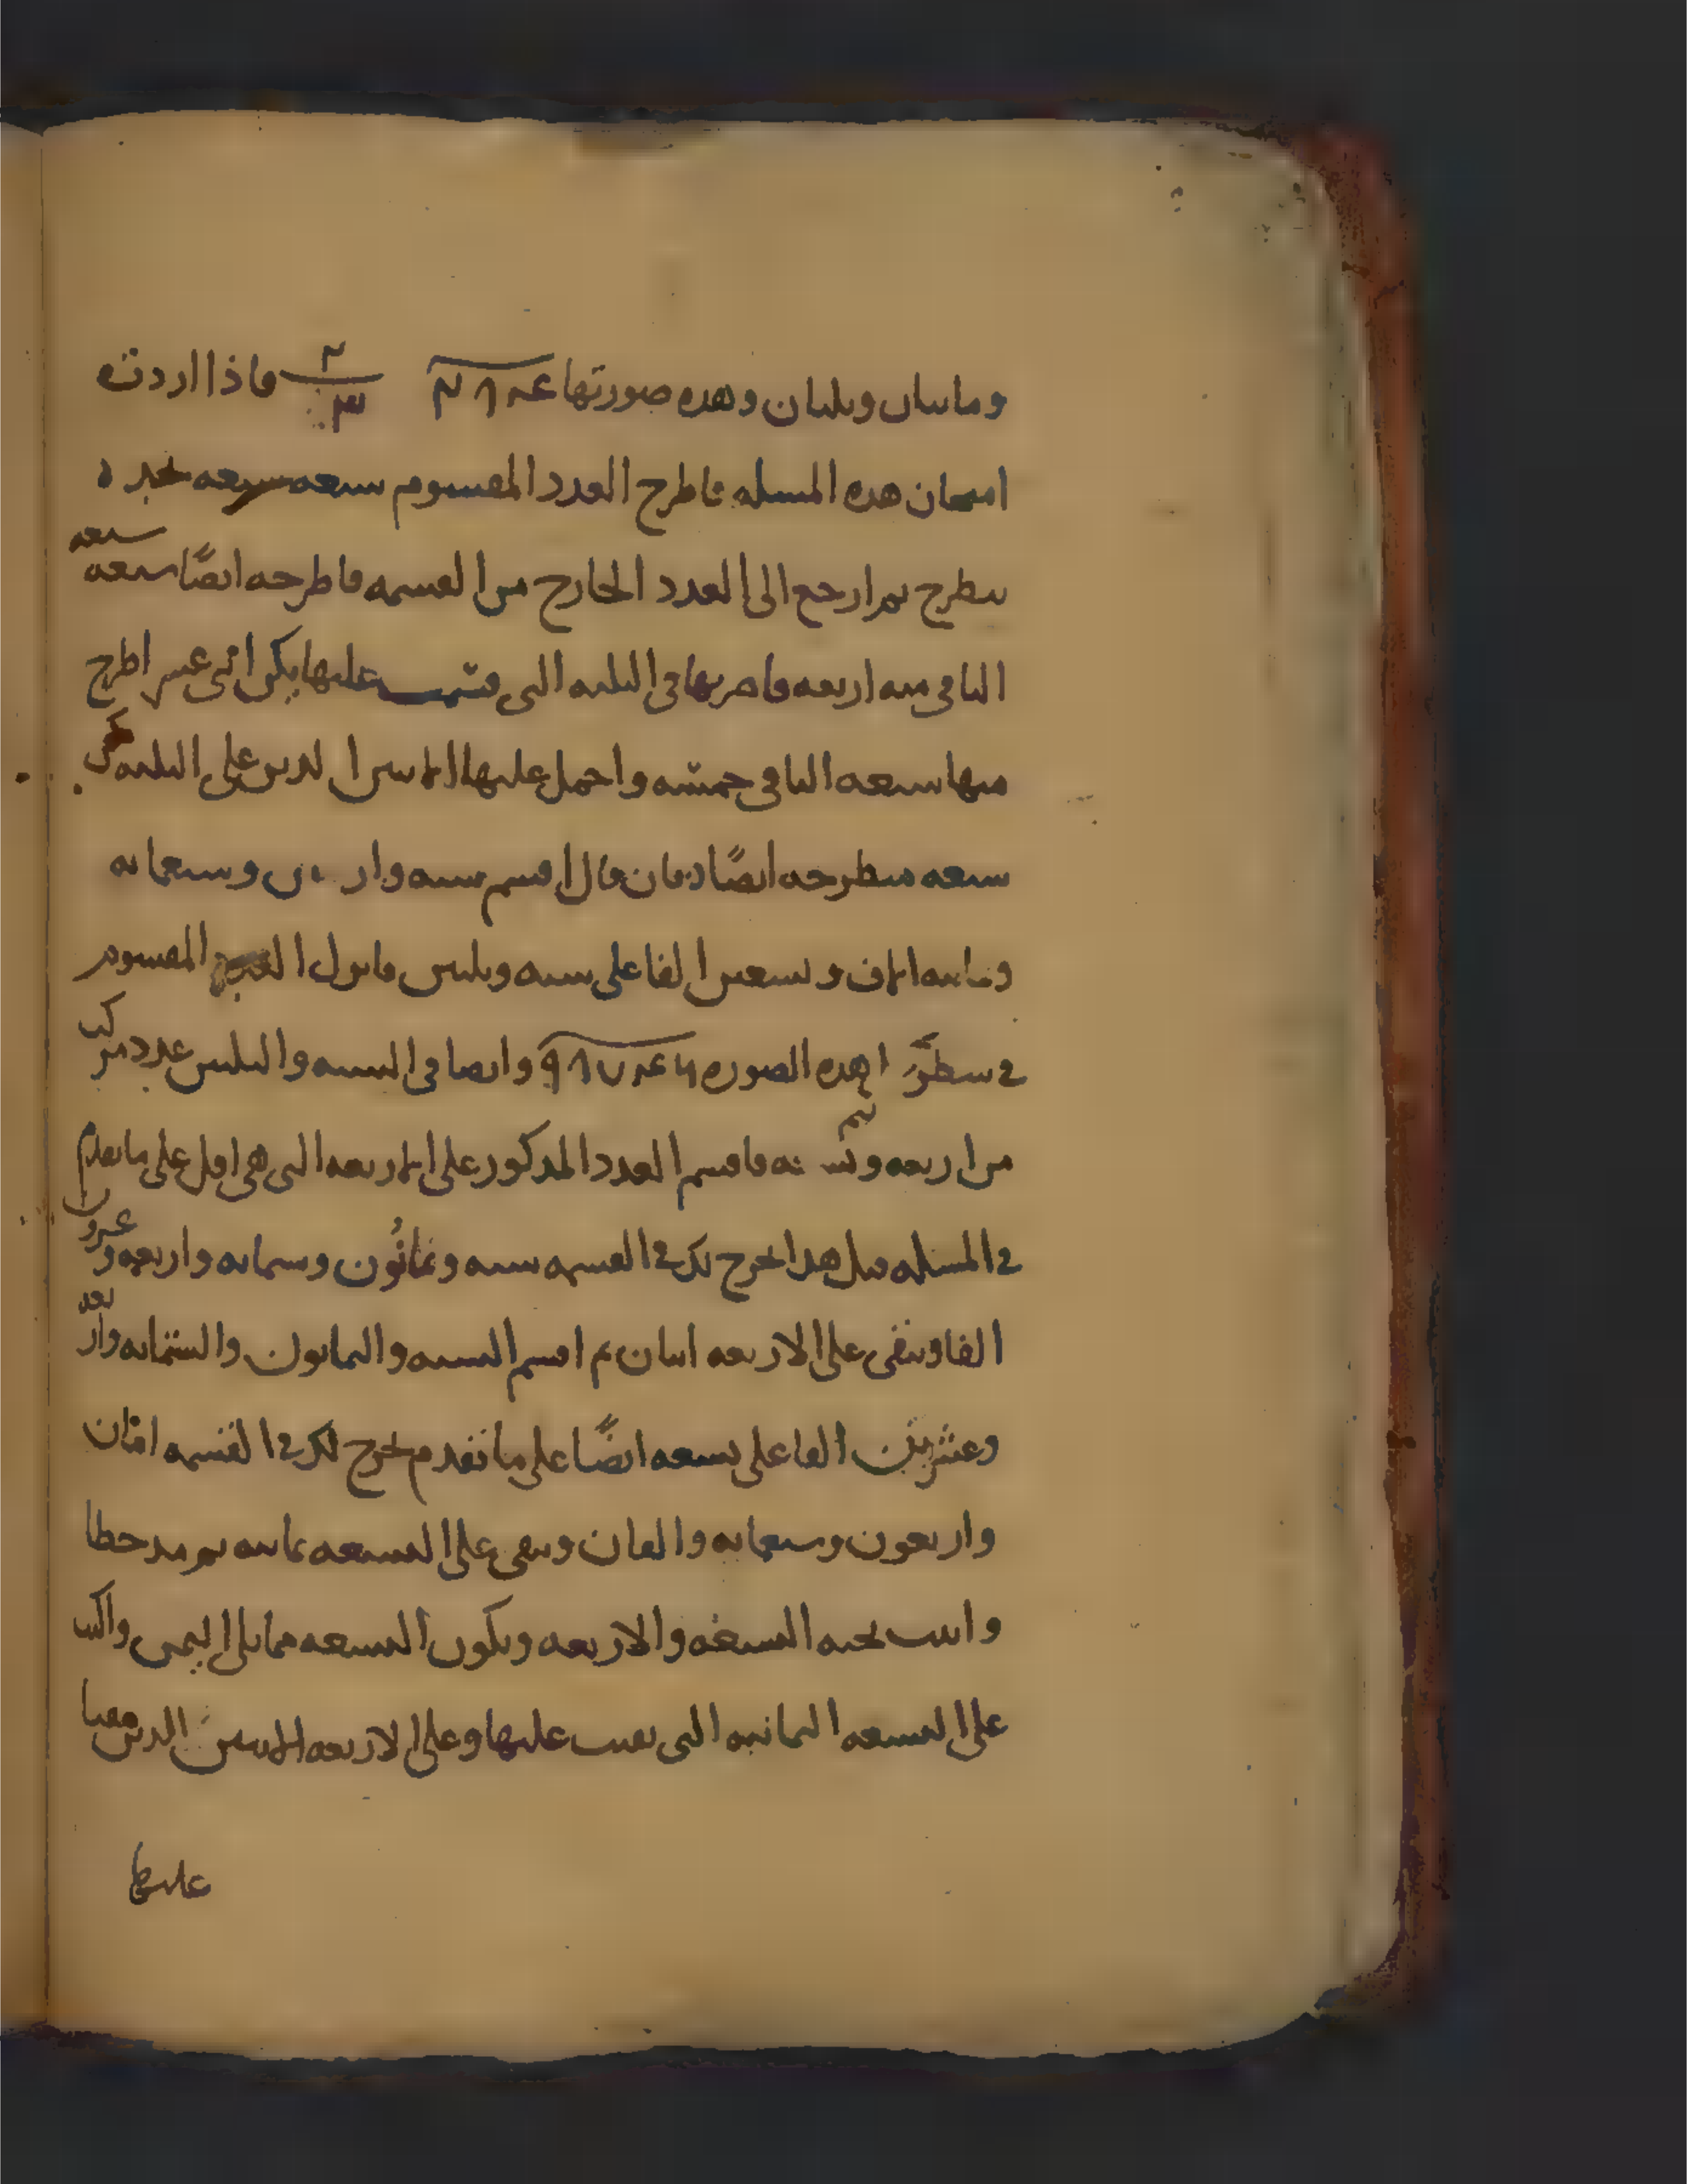 ومايتان وثلثان وهذه صورتها ٢٨٤ ٢/٣ فاذا اردت
امتحان هذه المسله فاطرح العدد المقسوم سبعه سبعه تجده
ينطرح ثم ارجع الى العدد الخارج من القسمه فاطرحه ايضًا سبعه سبعه
الباقى منه اربعه فاضربها فى الثلثه التى قسمت عليها يكن اثنى عشر اطرح
منها سبعه الباقى خمسه واحمل عليها الاثنين الذين على الثلثه تكن
سبعه فتطرحه ايضًا فان قال اقسم سته واربعين وسبعمايه
وثمانيه الاف وتسعين الفا على سته وثلثين فانزل العدد المقسوم
فى سطر هذه الصوره ٩٨٧٤٦ وايضا فى السته والثلثين عدد مركب
من اربعه وتسعه فاقسم العدد المذكور على الاربعه التى هى اقل على ما تقدم
فى المسله قبل هذا يخرج لك فى القسمه سته وثمانُون وستمايه واربعه وعشرون
الفا ويبقى على الاربعه اثنان ثم اقسم السته والثمانون والستمايه واربعه
وعشرين الفا على تسعه ايضًا على ما تقدم يخرج لك فى القسمه اثنان
واربعون وسبعمايه والفان ويبقى على التسعه ثمانيه ثم مد خطا
واثبت تحته التسعه والاربعه وتكون التسعه مما يلى اليمين واكتب
على التسعه الثمانيه التى بقيت عليها وعلى الاربعه الاثنين الذين بقيا
عليها